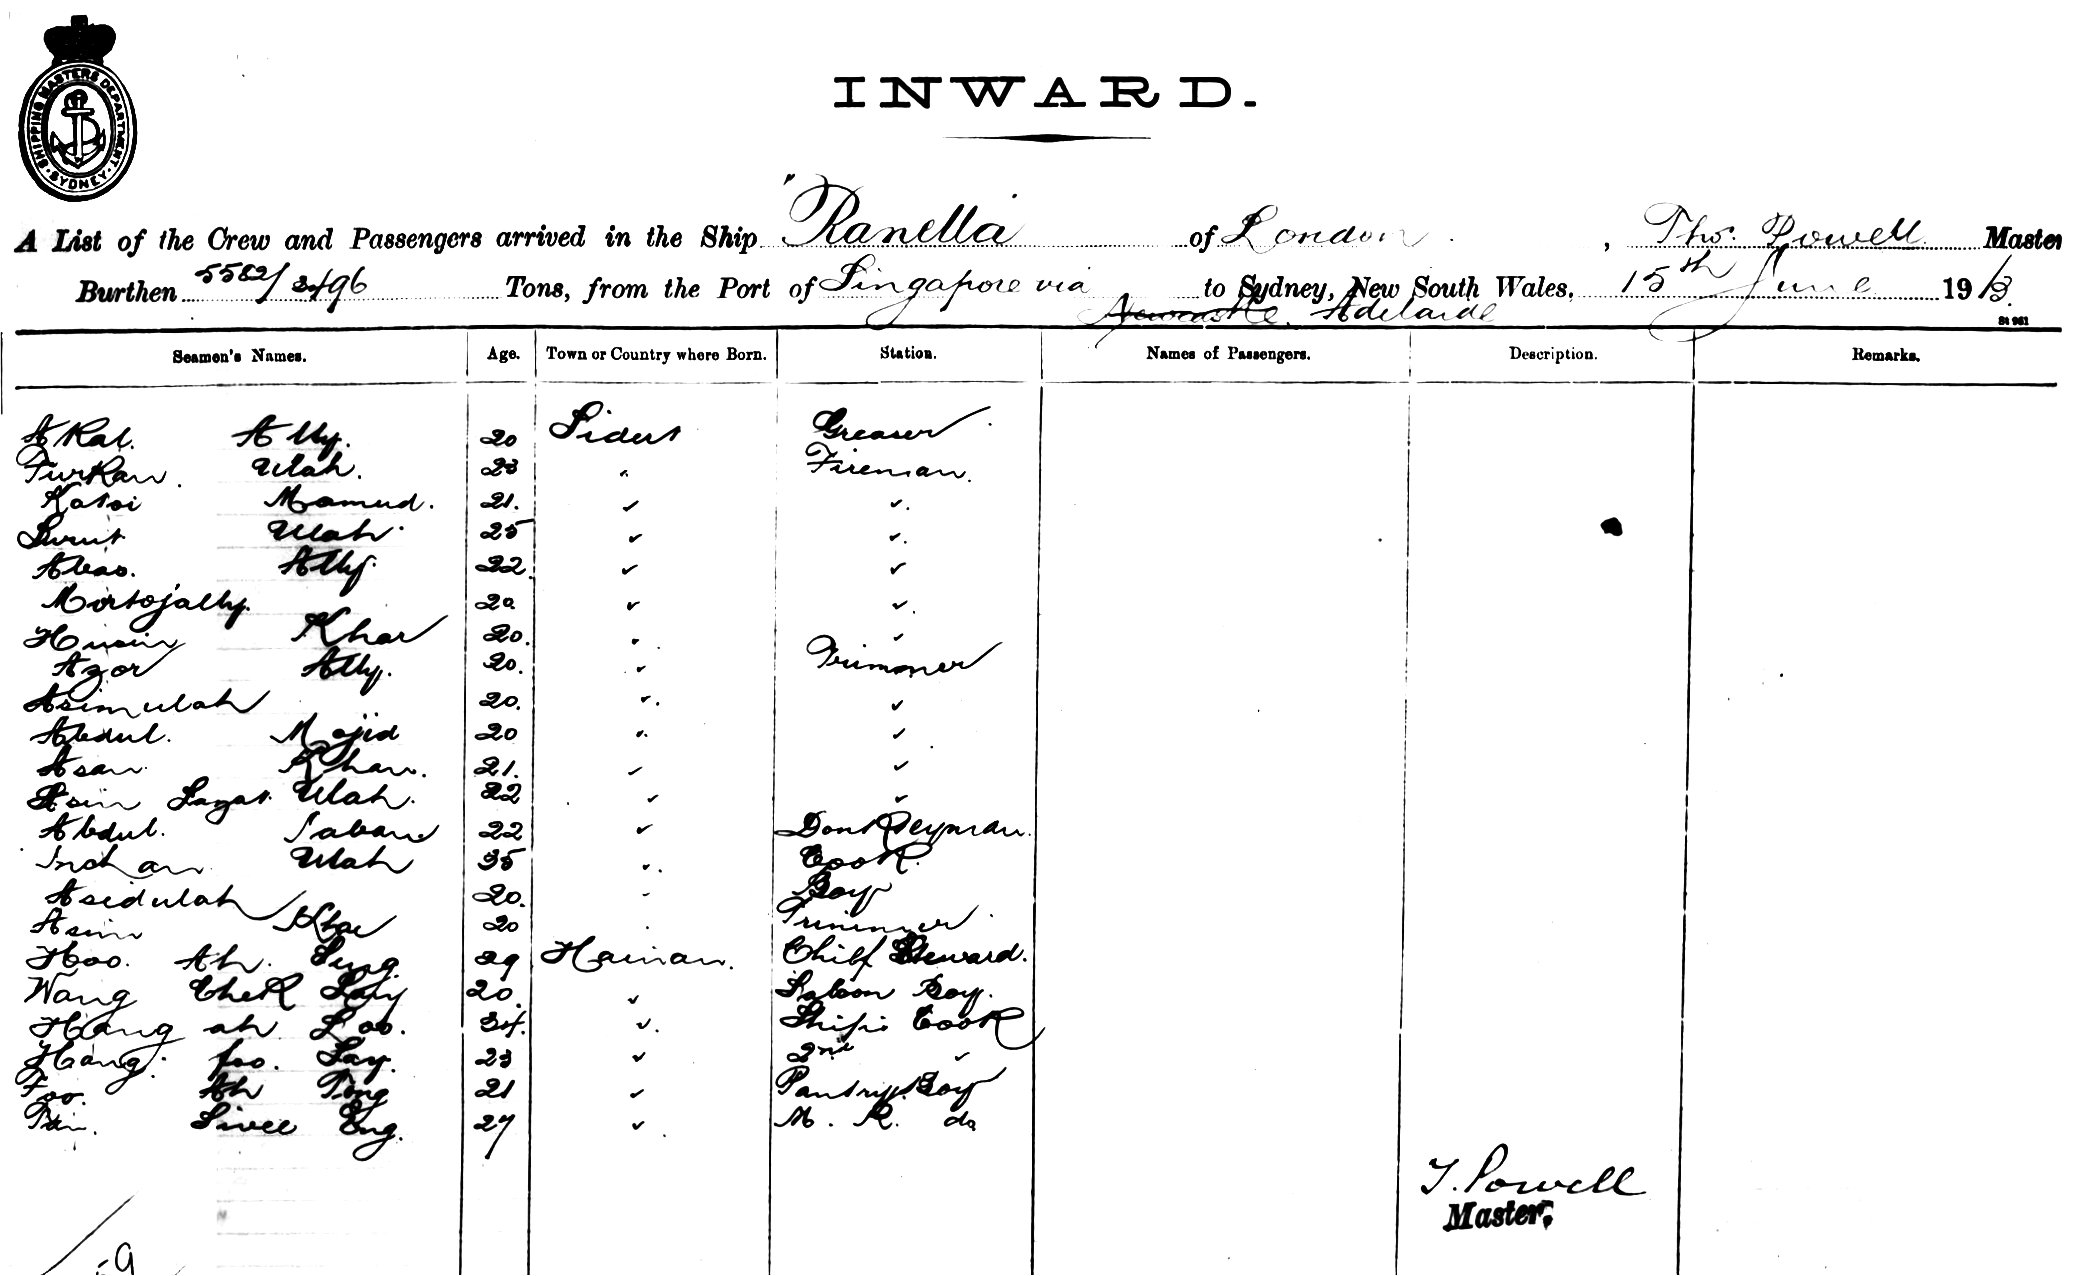 SHIPPING MASTERS DEPARTMENT. SYDNEY.
INWARD.
A List of the Crew and Passengers arrived in the Ship "Ranella of London, Thos. Powell Master
Burthen 5582/ Tons, from the Port of Singapore via to Sydney, New South Wales, 15th June 1913.
Newcastle. Adelaide
St 961
Seamen's Names. Age. Town or Country where Born. Station. Names of Passengers. Description. Remarks.
Akal. Ally. 20 Greaser
Furkan. Ulah. 23 " Fireman.
Katoi Mamud. 21. " "
Ulah 25 " "
Abas. Ally. 22. " "
Mortojally. 20. " "
Husin Khar 20. " "
Azor Ally. 20. " Trimmer
Asimulah 20. " "
Abdul. Mojid 20 " "
Asan Khan. 21. " "
Ulah. 22 " "
Abdul. 22 " Donkeyman.
Ulah 35 " Cook.
Asidulah 20. " Boy
Asim 20 Trimmer
Hoo. Ah. Sing. 29 Hainan. Chief Steward.
Wang Chek Lay 20. " Saloon Boy.
Hang ah Loo. 34. " Ship's Cook
Hang. foo. Lay. 23 " 2nd "
Foo. Ah Tong 21 " Pantry. Boy
Sivee Eng. 27 " M. R. do
T. Powell
Master.